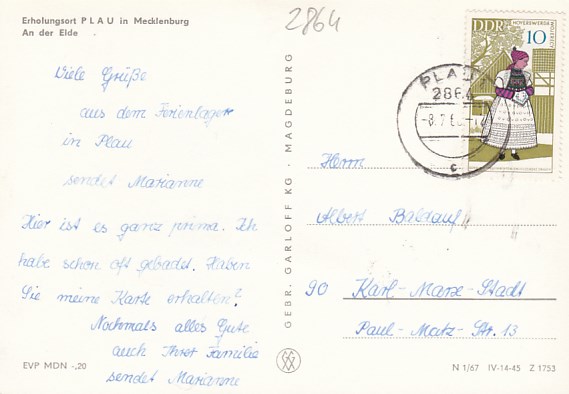 Erholungsort PLAU in Mecklenburg
An der Elde
2864
Viele Grüße
aus dem Ferienlager
in Plau
sendet Marianne
Hier ist es ganz prima. Ich
habe schon oft gebadet. Haben
Sie meine Karte erhalten?
Nochmals alles Gute
auch Ihrer Familie
sendet Marianne
EVP MDN -,20
GEBR. GARLOFF KG · MAGDEBURG
DDR
HOYERSWERDA
10
PLAU
2864
c
Herrn
Albert Baldauf
90 Karl-Marx-Stadt
Paul-Matz-Str. 13
N 1/67 IV-14-45 Z 1753